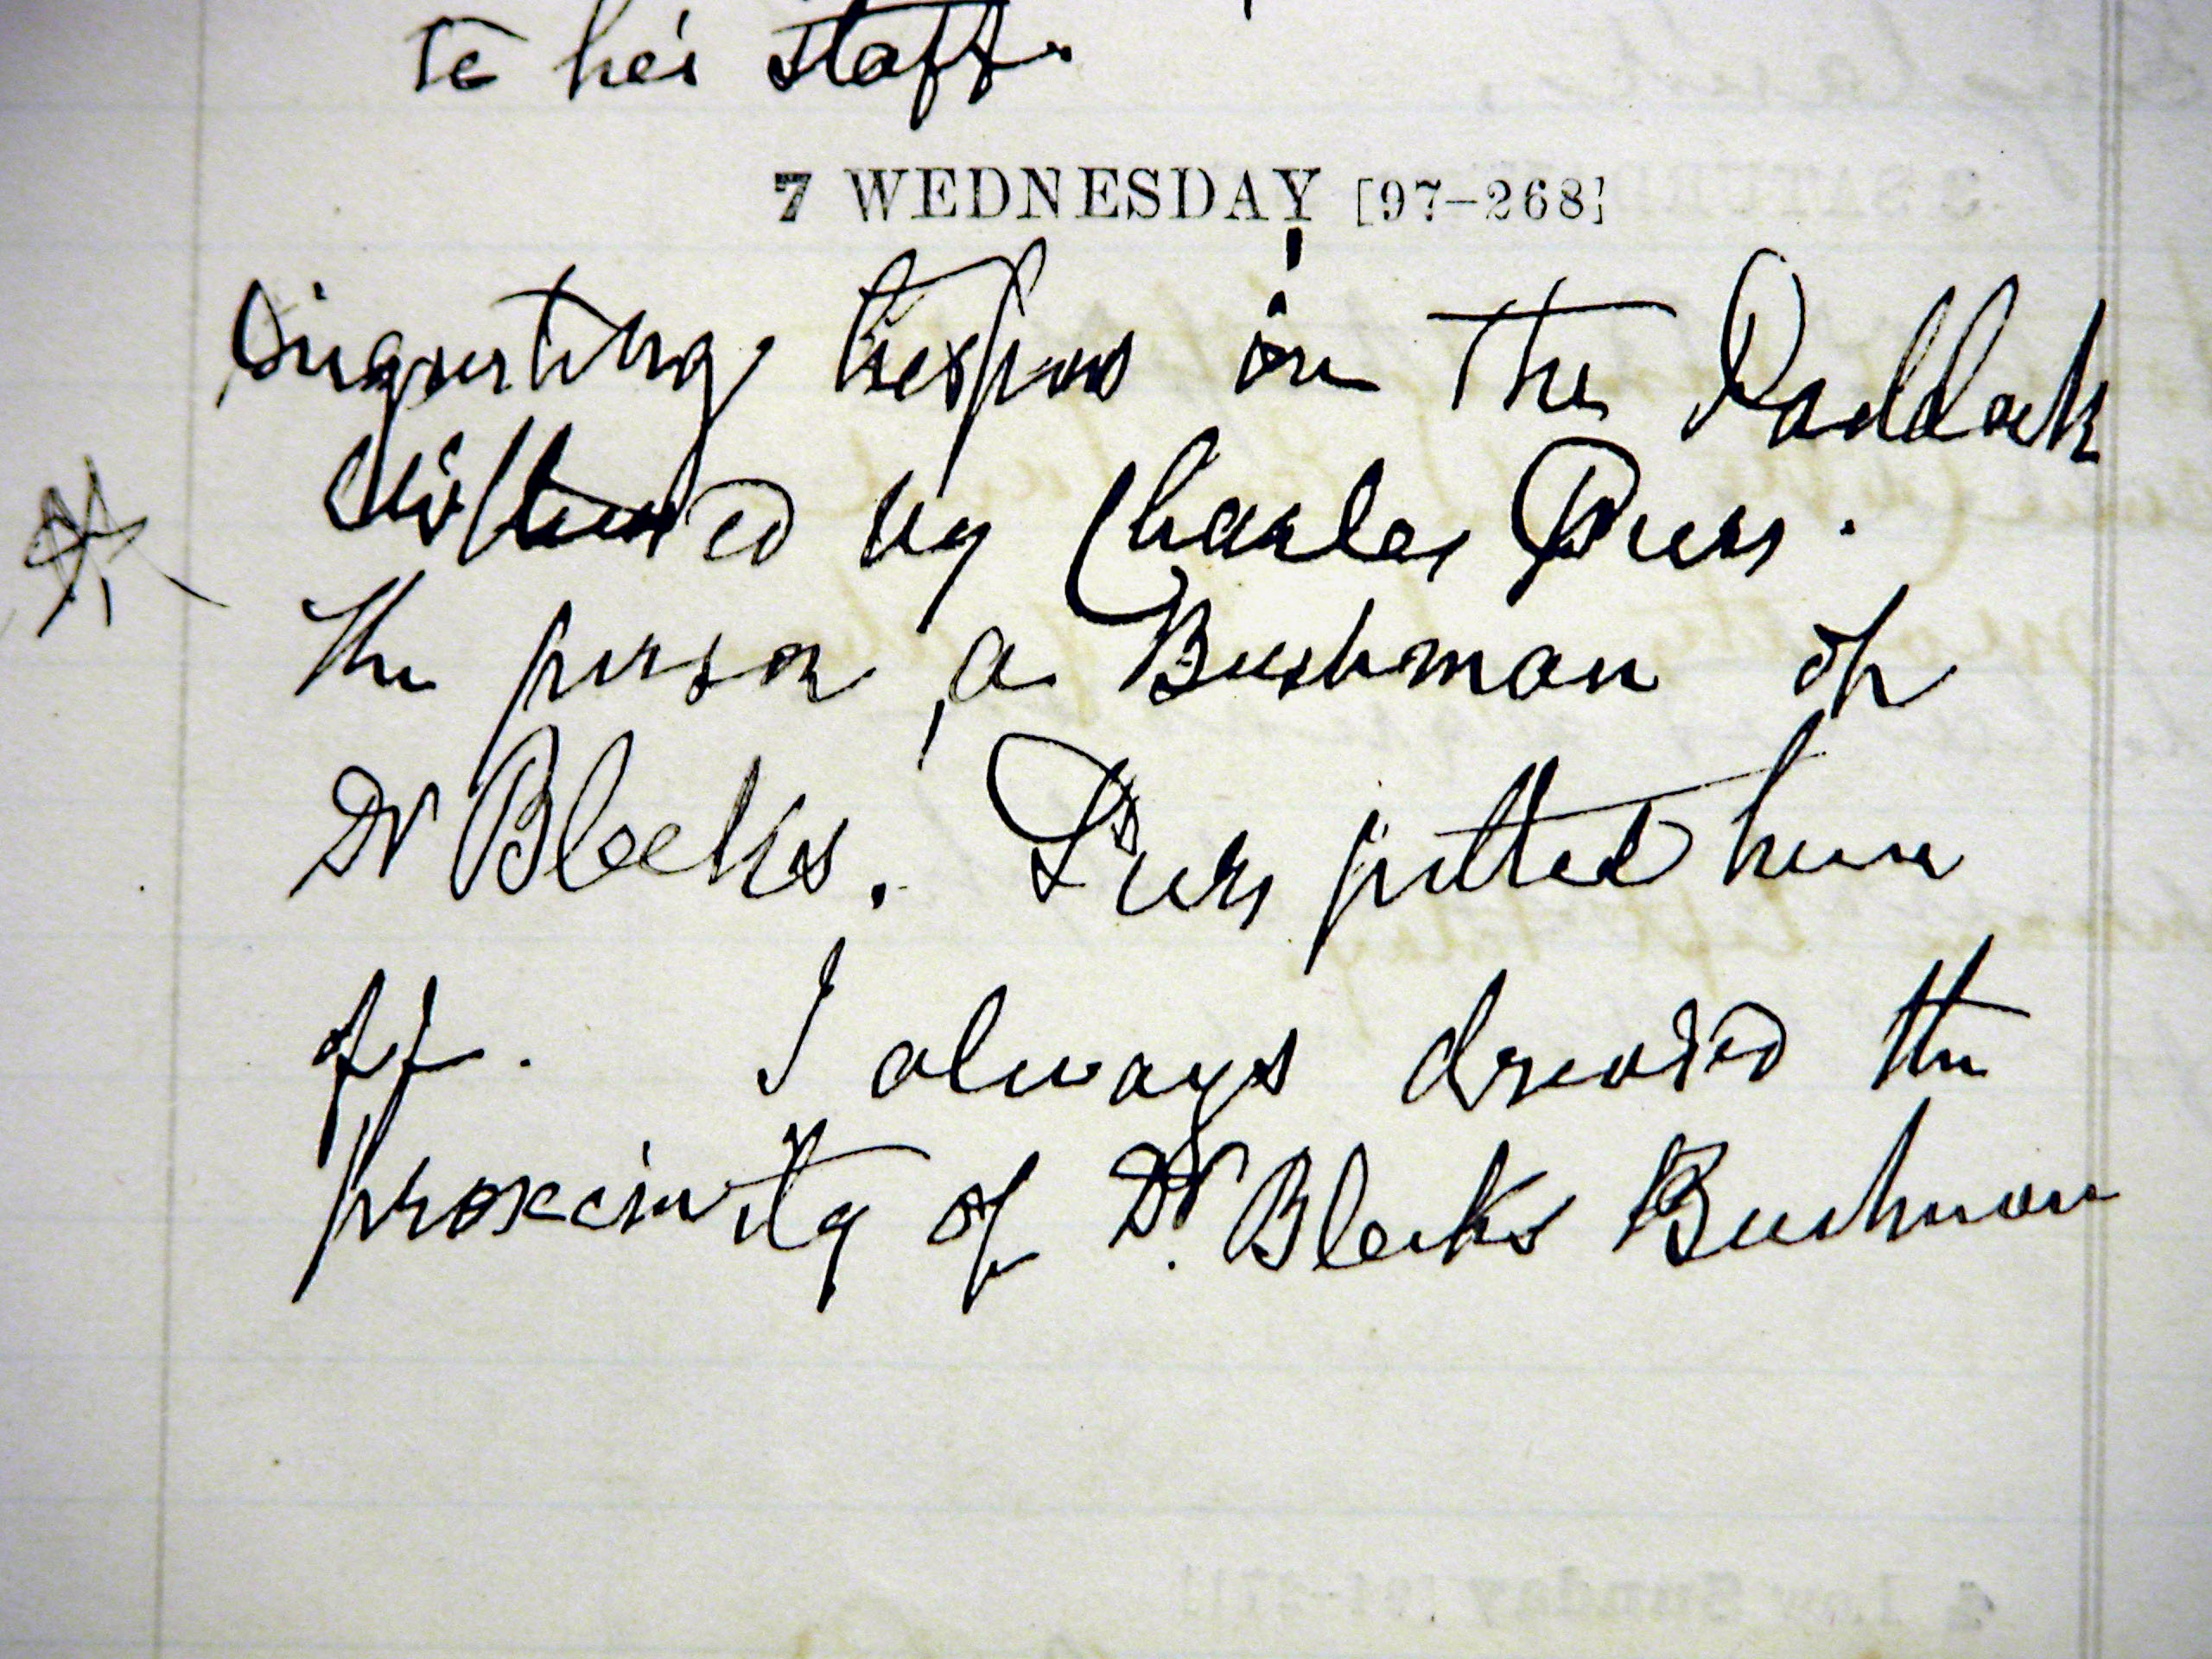 to his staff.
7 WEDNESDAY [97-268]
Disgusting trespass in the Paddock
disturbed by Charles Piers.
The person, a Bushman of
Dr Bleeks. Piers pitted him
off. I always dreaded the
proximity of Dr. Bleeks Bushman